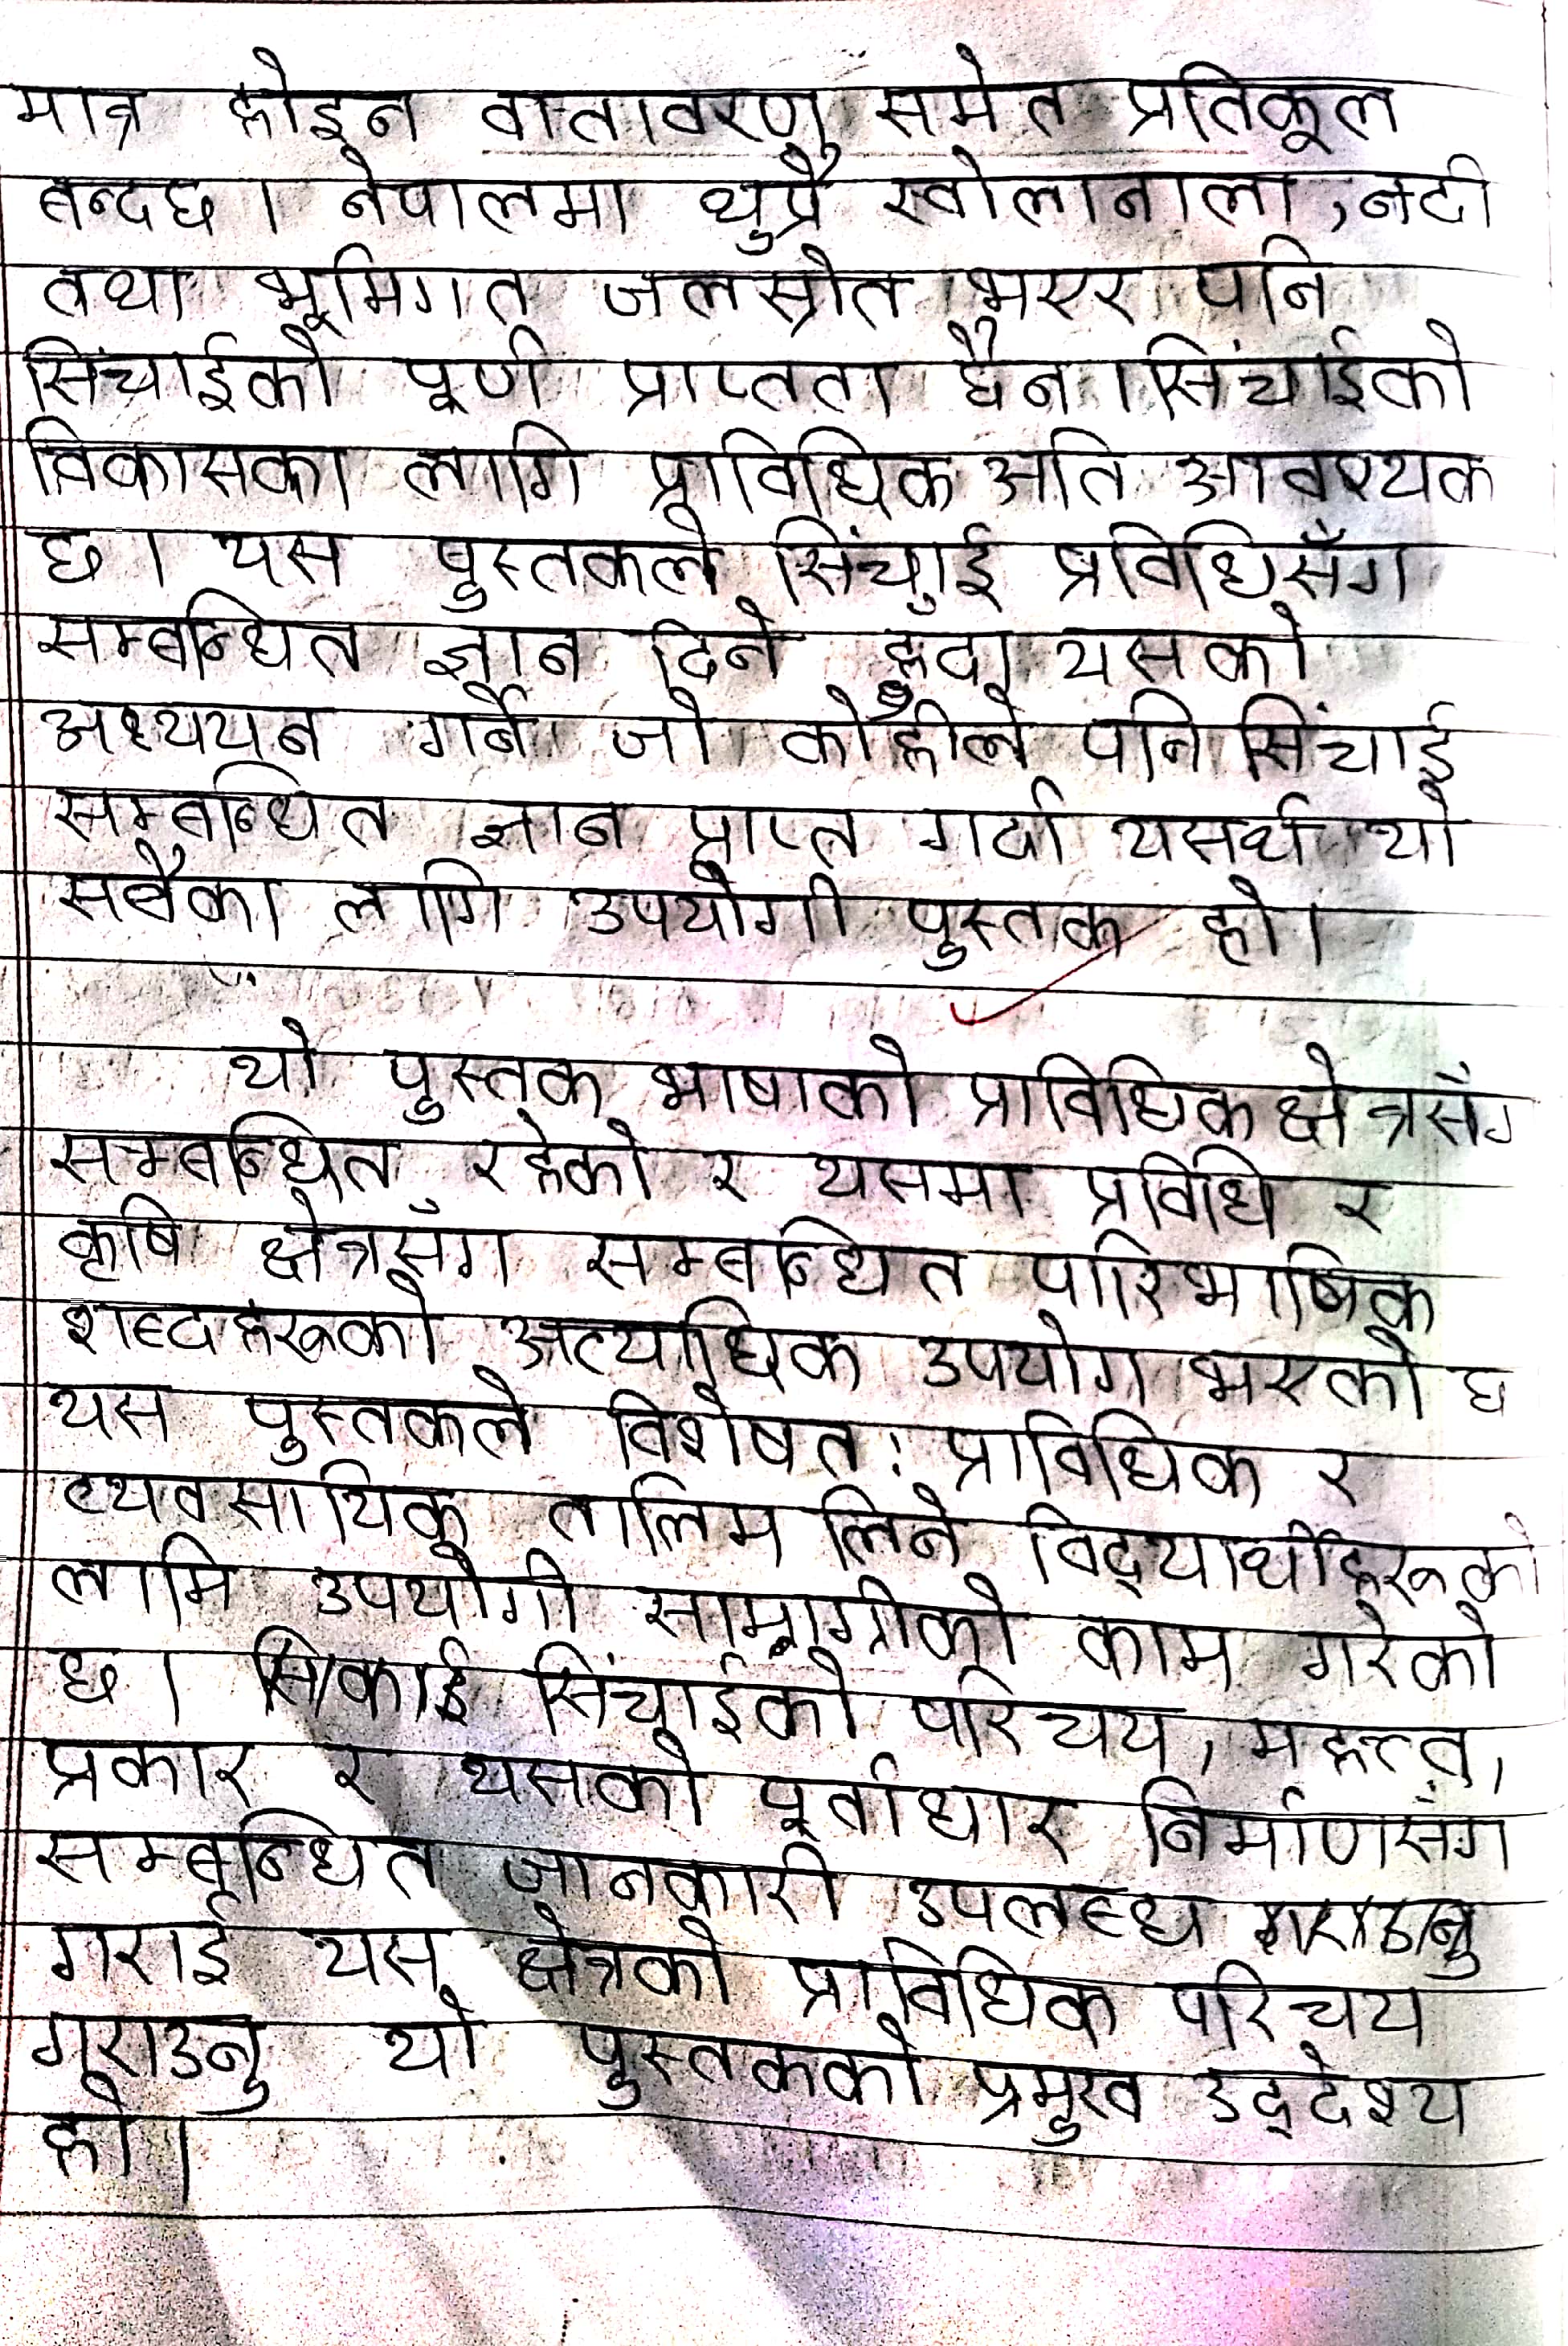 मात्र होइन वातावरण समेत प्रतिकूल
बन्दछ। नेपालमा थुप्रै खोलानाला, नदी
तथा भूमिगत जलस्रोत भएर पनि
सिंचाईको पूर्ण प्राप्तता छैन। सिंचाईको
विकासका लागि प्राविधिक अति आवश्यक
छ। यस पुस्तकले सिंचाई प्रविधिसँग
सम्बन्धित ज्ञान दिने हुँदा यसको
अध्ययन गर्ने जो कोहीले पनि सिंचाई
सम्बन्धित ज्ञान प्राप्त गर्दा यसर्थ यो
सबैका लागि उपयोगी पुस्तक हो।
यो पुस्तक भाषाको प्राविधिक क्षेत्रसँग
सम्बन्धित रहेको र यसमा प्रविधि र
कृषि क्षेत्रसँग सम्बन्धित पारिभाषिक
शब्दहरूको अत्याधिक उपयोग भएको छ
यस पुस्तकले विशेषत: प्राविधिक र
व्यवसायिक तालिम लिने विद्यार्थीहरूको
लागि उपयोगी सामाग्रीको काम गरेको
छ। सिंचाईको परिचय, महत्त्व,
प्रकार र यसको पूर्वाधार निर्माणसँग
सम्बन्धित जानकारी उपलब्ध
गराई यस क्षेत्रको प्राविधिक परिचय
गराउनु यो पुस्तकको प्रमुख उद्देश्य
हो।